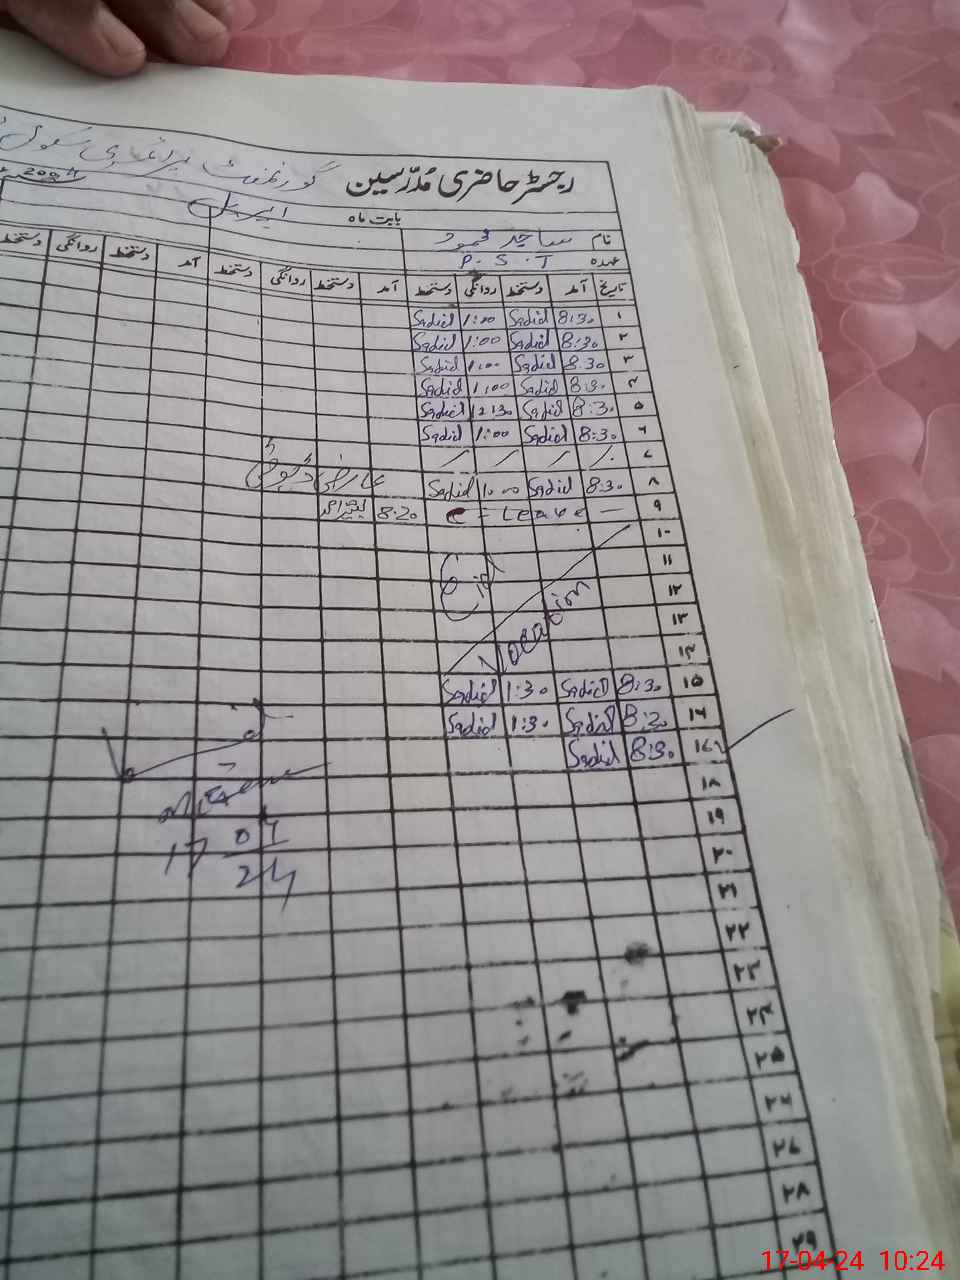 رجسٹر حاضری مدرسین گورنمنٹ پرائمری سکول
بابت ماہ اپریل
نام ساجد محمود
عہدہ P.S.T
تاریخ آمد دستخط روانگی دستخط آمد دستخط روانگی دستخط آمد دستخط روانگی دستخط
۱ 8:30 Sadid 1:00 Sadid
۲ 8:30 Sadid 1:00 Sadid
۳ 8:30 Sadid 1:00 Sadid
۴ 8:30 Sadid 1:00 Sadid
۵ 8:30 Sadid 12:30 Sadid
۶ 8:30 Sadid 1:00 Sadid
۷
۸ 8:30 Sadid 1:00 Sadid عارضی ڈیوٹی
۹ — Leave = 8:20
۱۰
۱۱ Eid
۱۲ Vocation
۱۳
۱۴
۱۵ 8:30 Sadid 1:30 Sadid
۱۶ 8:30 Sadid 1:30 Sadid
۱۷ 8:30 Sadid
۱۸
۱۹
17 04
24
۲۰
۲۱
۲۲
۲۳
۲۴
۲۵
۲۶
۲۷
۲۸
۲۹
17-04-24 10:24